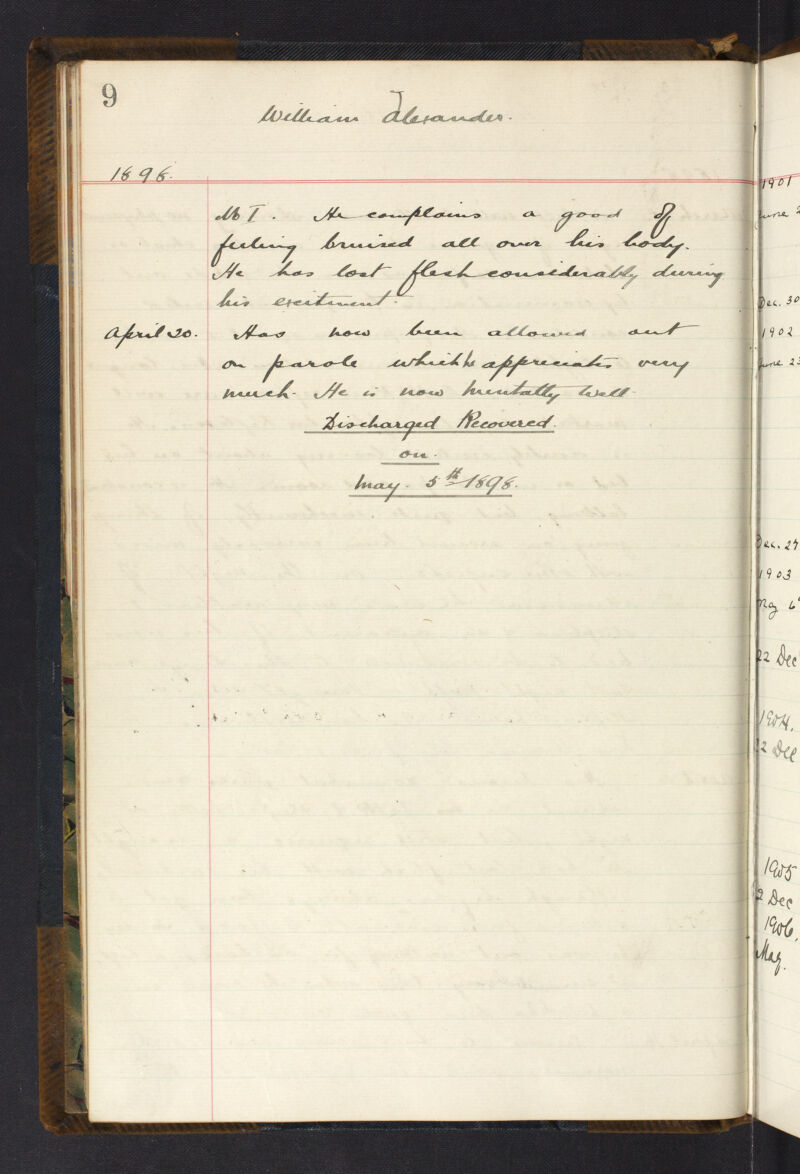 9
William Alexander.
1898.
He complains a good of
feeling bruised all over his body.
He has lost flesh considerably during
his excitment.
April 20. Has now been allowed out
on parole which he appreciates very
much. He is now mentally well.
Discharged Recovered.
on.
May. 5th 1898.
1901
June
Dec. 30
1902
June 23
Dec. 27
1903
May 6
22 Dec
1904.
2 Dec
1905
2 Dec
1906.
May.